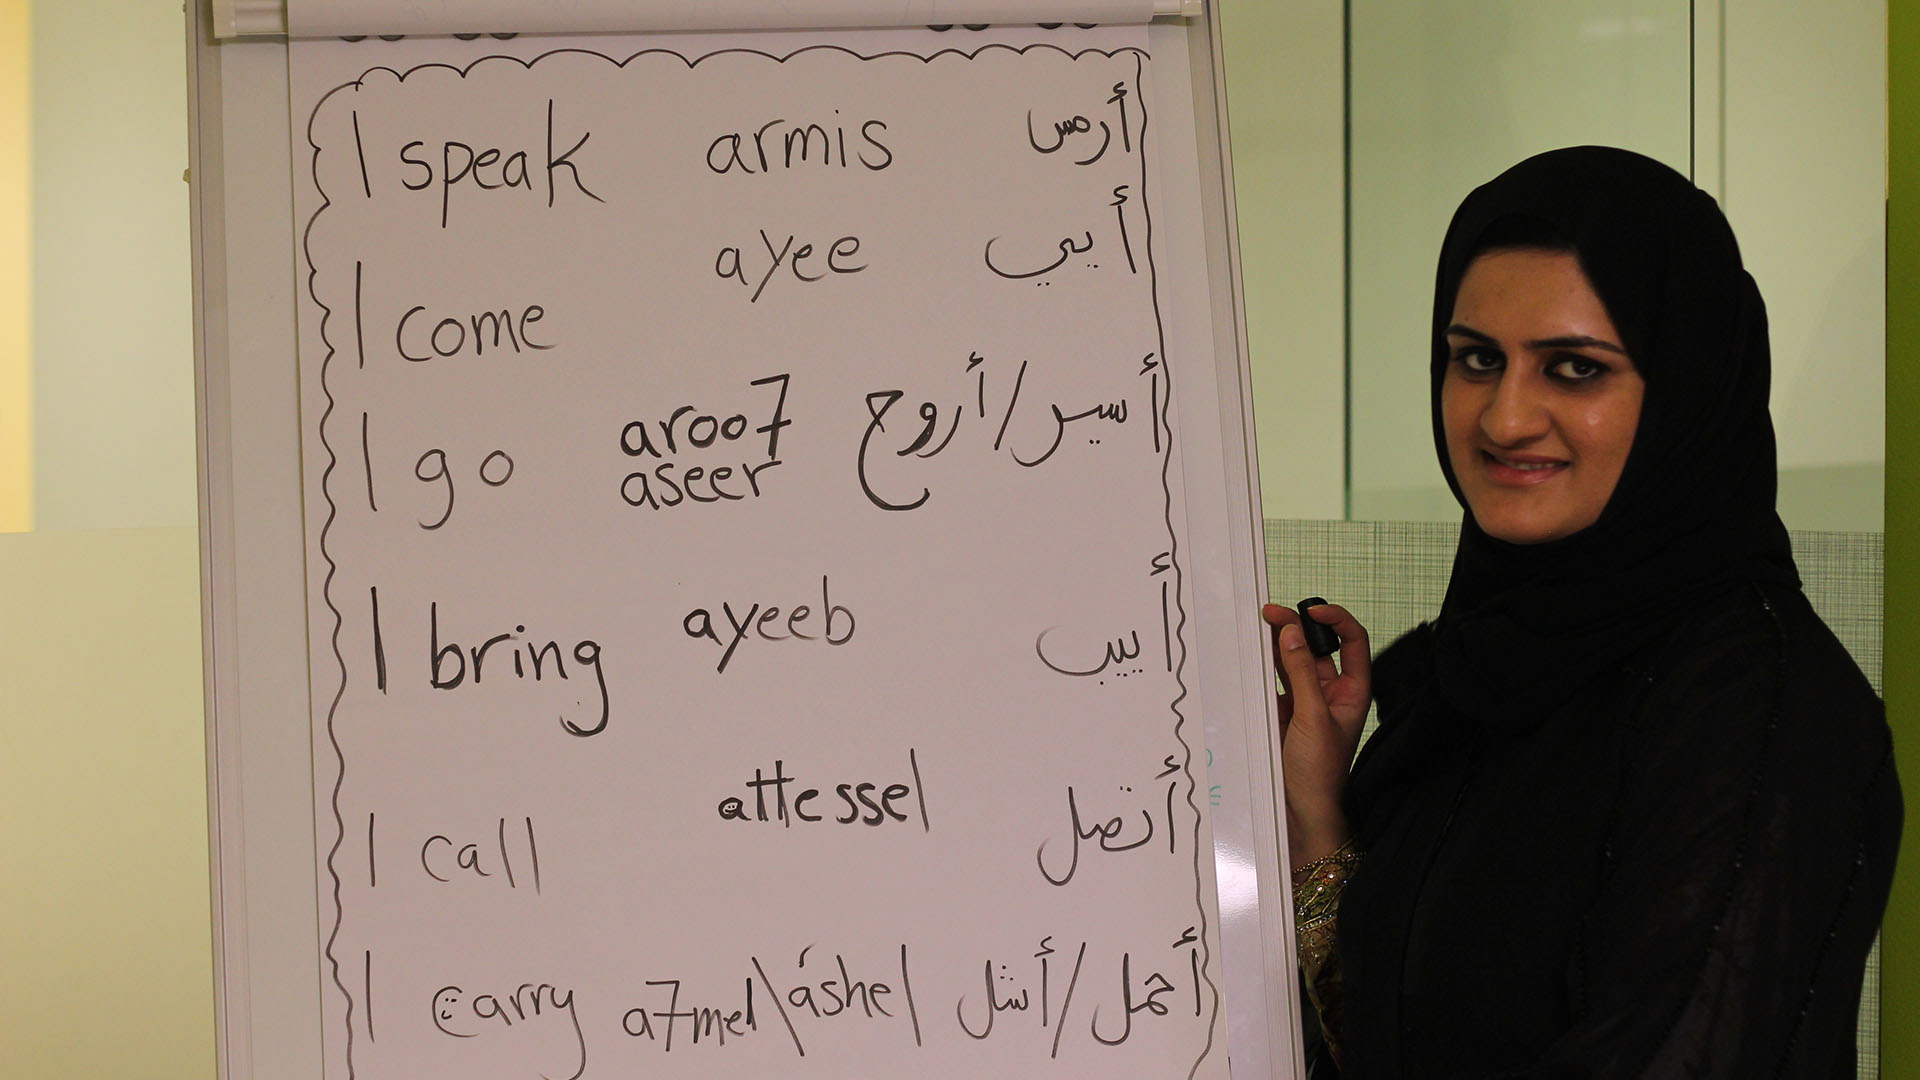 I speak armis أرمس
I come ayee أيي
I go aroo7 أسير/أروح
aseer
I bring ayeeb أييب
I call attessel أتصل
I carry a7mel\áshel أحمل/أشل